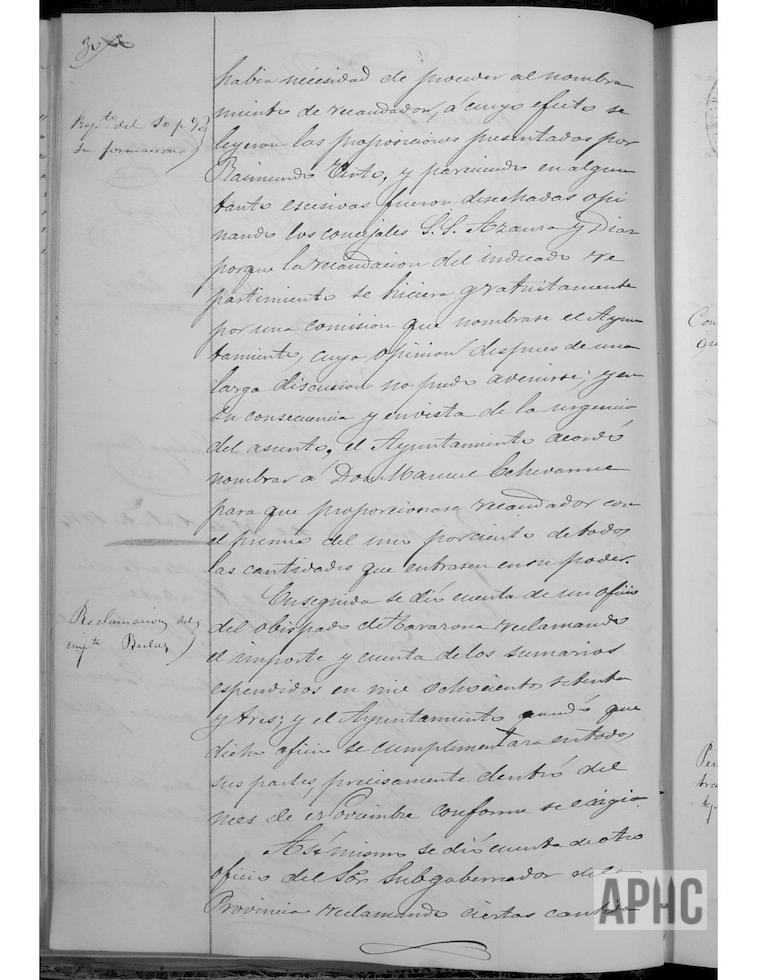 30
habia necesidad de proceder al nombra
miento de recaudador, á cuyo efecto se
Rep.to del 50 p%
su formacion
leyeron las proposiciones presentadas por
Raimundo Tirto, y pareciendo en algun
tanto escesivas fueron desechadas opi
nando los concejales S.S. Azaura y Diaz
porque la recaudacion del indicado re
partimiento se hiciera gratuitamente
por una comision que nombrase el Ayun
tamiento, cuya opinion despues de una
larga discusion no pudo avenirse; y en
su consecuencia y en vista de la urgencia
del asunto, el Ayuntamiento acordó
nombrar á Don Manuel Echevarria
para que proporcionara recaudador con
el premio del uno por ciento de todas
las cantidades que entrasen en su poder.
Enseguida se dió cuenta de un oficio
Reclamacion del
impte Bulas
del obispado de Tarazona reclamando
el importe y cuenta de los sumarios
espendidos en mil ochocientos setenta
y tres; y el Ayuntamiento acordó que
dicho oficio se cumplimentara en todas
sus partes, precisamente dentro del
mes de Noviembre conforme se exigia.
Asi mismo se dió cuenta de otro
oficio del Sor Subgobernador de la
Provincia reclamando ciertas cantida
Con
que
Per
APHC